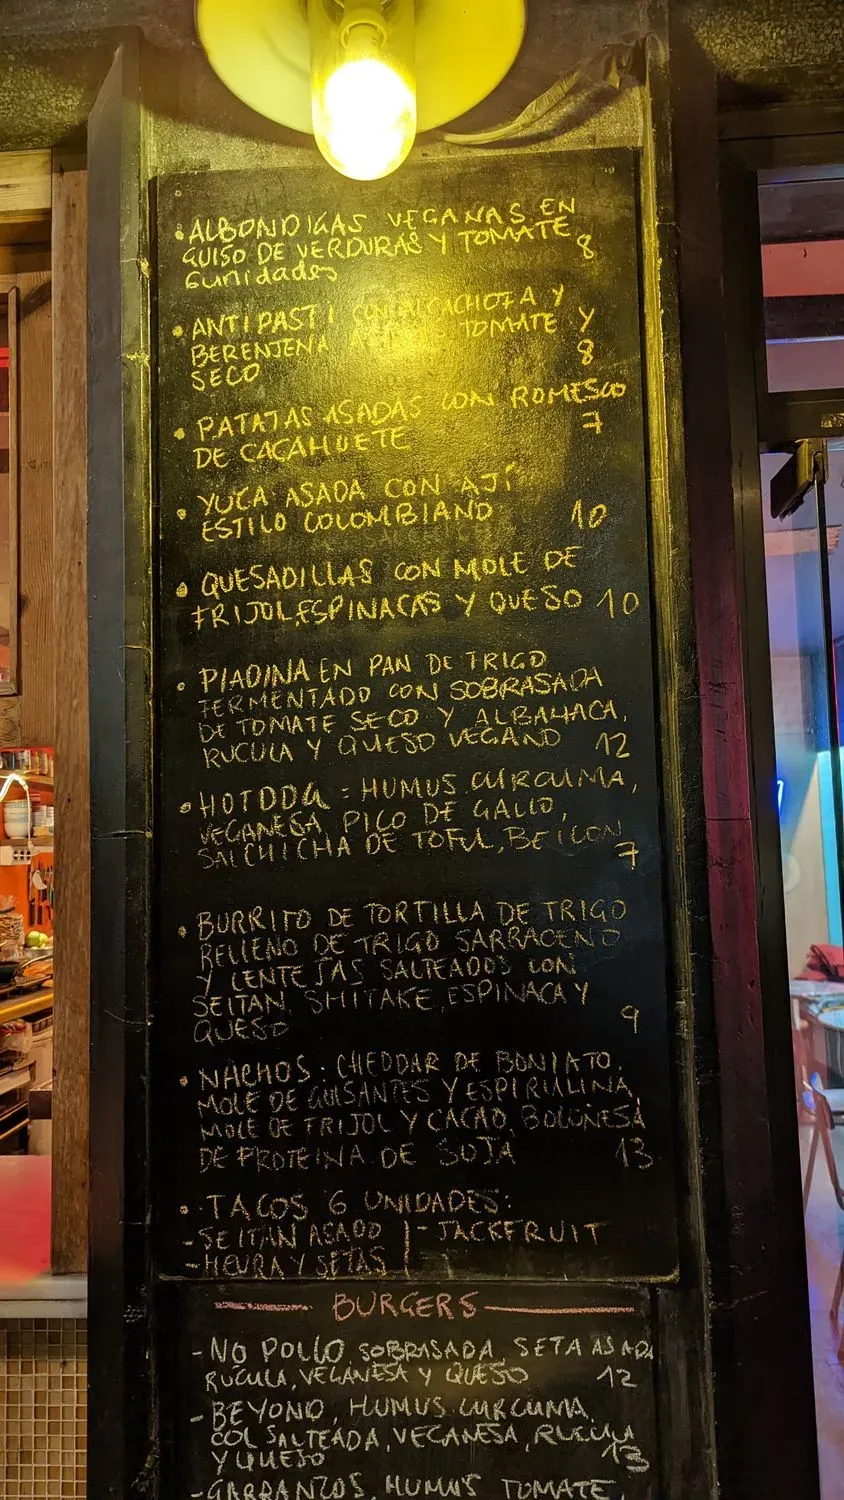 •ALBONDIGAS VEGANAS EN
GUISO DE VERDURAS Y TOMATE
6unidades 8
•ANTIPASTI CON ALCACHOFA Y
BERENJENA TOMATE Y
SECO 8
•PATATAS ASADAS CON ROMESCO
DE CACAHUETE 7
•YUCA ASADA CON AJÍ
ESTILO COLOMBIANO 10
•QUESADILLAS CON MOLE DE
FRIJOL,ESPINACAS Y QUESO 10
•PIADINA EN PAN DE TRIGO
FERMENTADO CON SOBRASADA
DE TOMATE SECO Y ALBAHACA,
RUCULA Y QUESO VEGANO 12
•HOTDOG = HUMUS CURCUMA,
VEGANESA PICO DE GALLO,
SALCHICHA DE TOFU, BEICON
7
•BURRITO DE TORTILLA DE TRIGO
RELLENO DE TRIGO SARRACENO
Y LENTEJAS SALTEADOS CON
SEITAN, SHITAKE, ESPINACA Y
QUESO 9
•NACHOS: CHEDDAR DE BONIATO,
MOLE DE GUISANTES Y ESPIRULINA,
MOLE DE FRIJOL Y CACAO, BOLOÑESA
DE PROTEINA DE SOJA 13
•TACOS 6 UNIDADES:
-SEITAN ASADO | -JACKFRUIT
-HEURA Y SETAS
BURGERS
-NO POLLO, SOBRASADA, SETA ASADA
RUCULA, VEGANESA Y QUESO 12
-BEYOND, HUMUS CURCUMA,
COL SALTEADA, VEGANESA, RUCULA
Y QUESO 13
-GARBANZOS, HUMUS TOMATE,